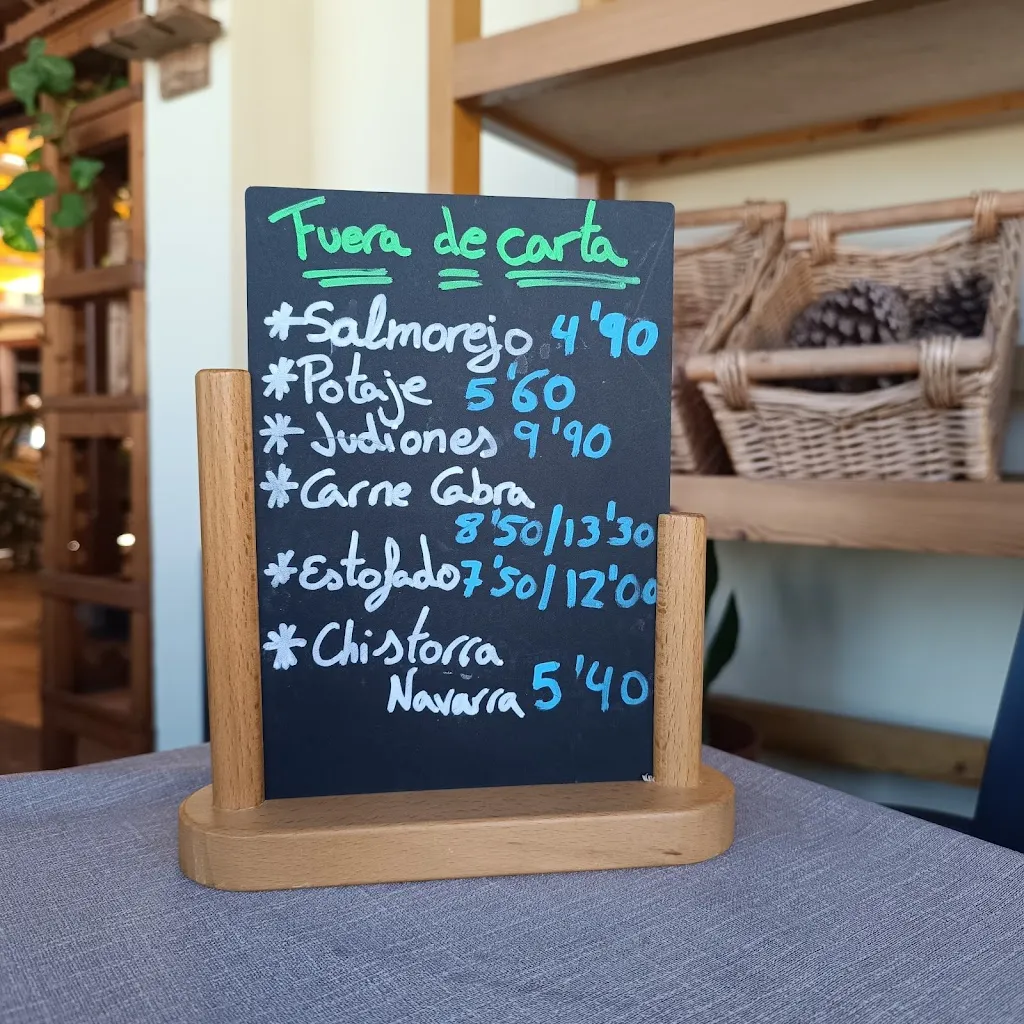 Fuera de carta
*Salmorejo 4'90
*Potaje 5'60
*Judiones 9'90
*Carne Cabra
8'50/13'30
*Estofado 7'50/12'00
*Chistorra
Navarra 5'40